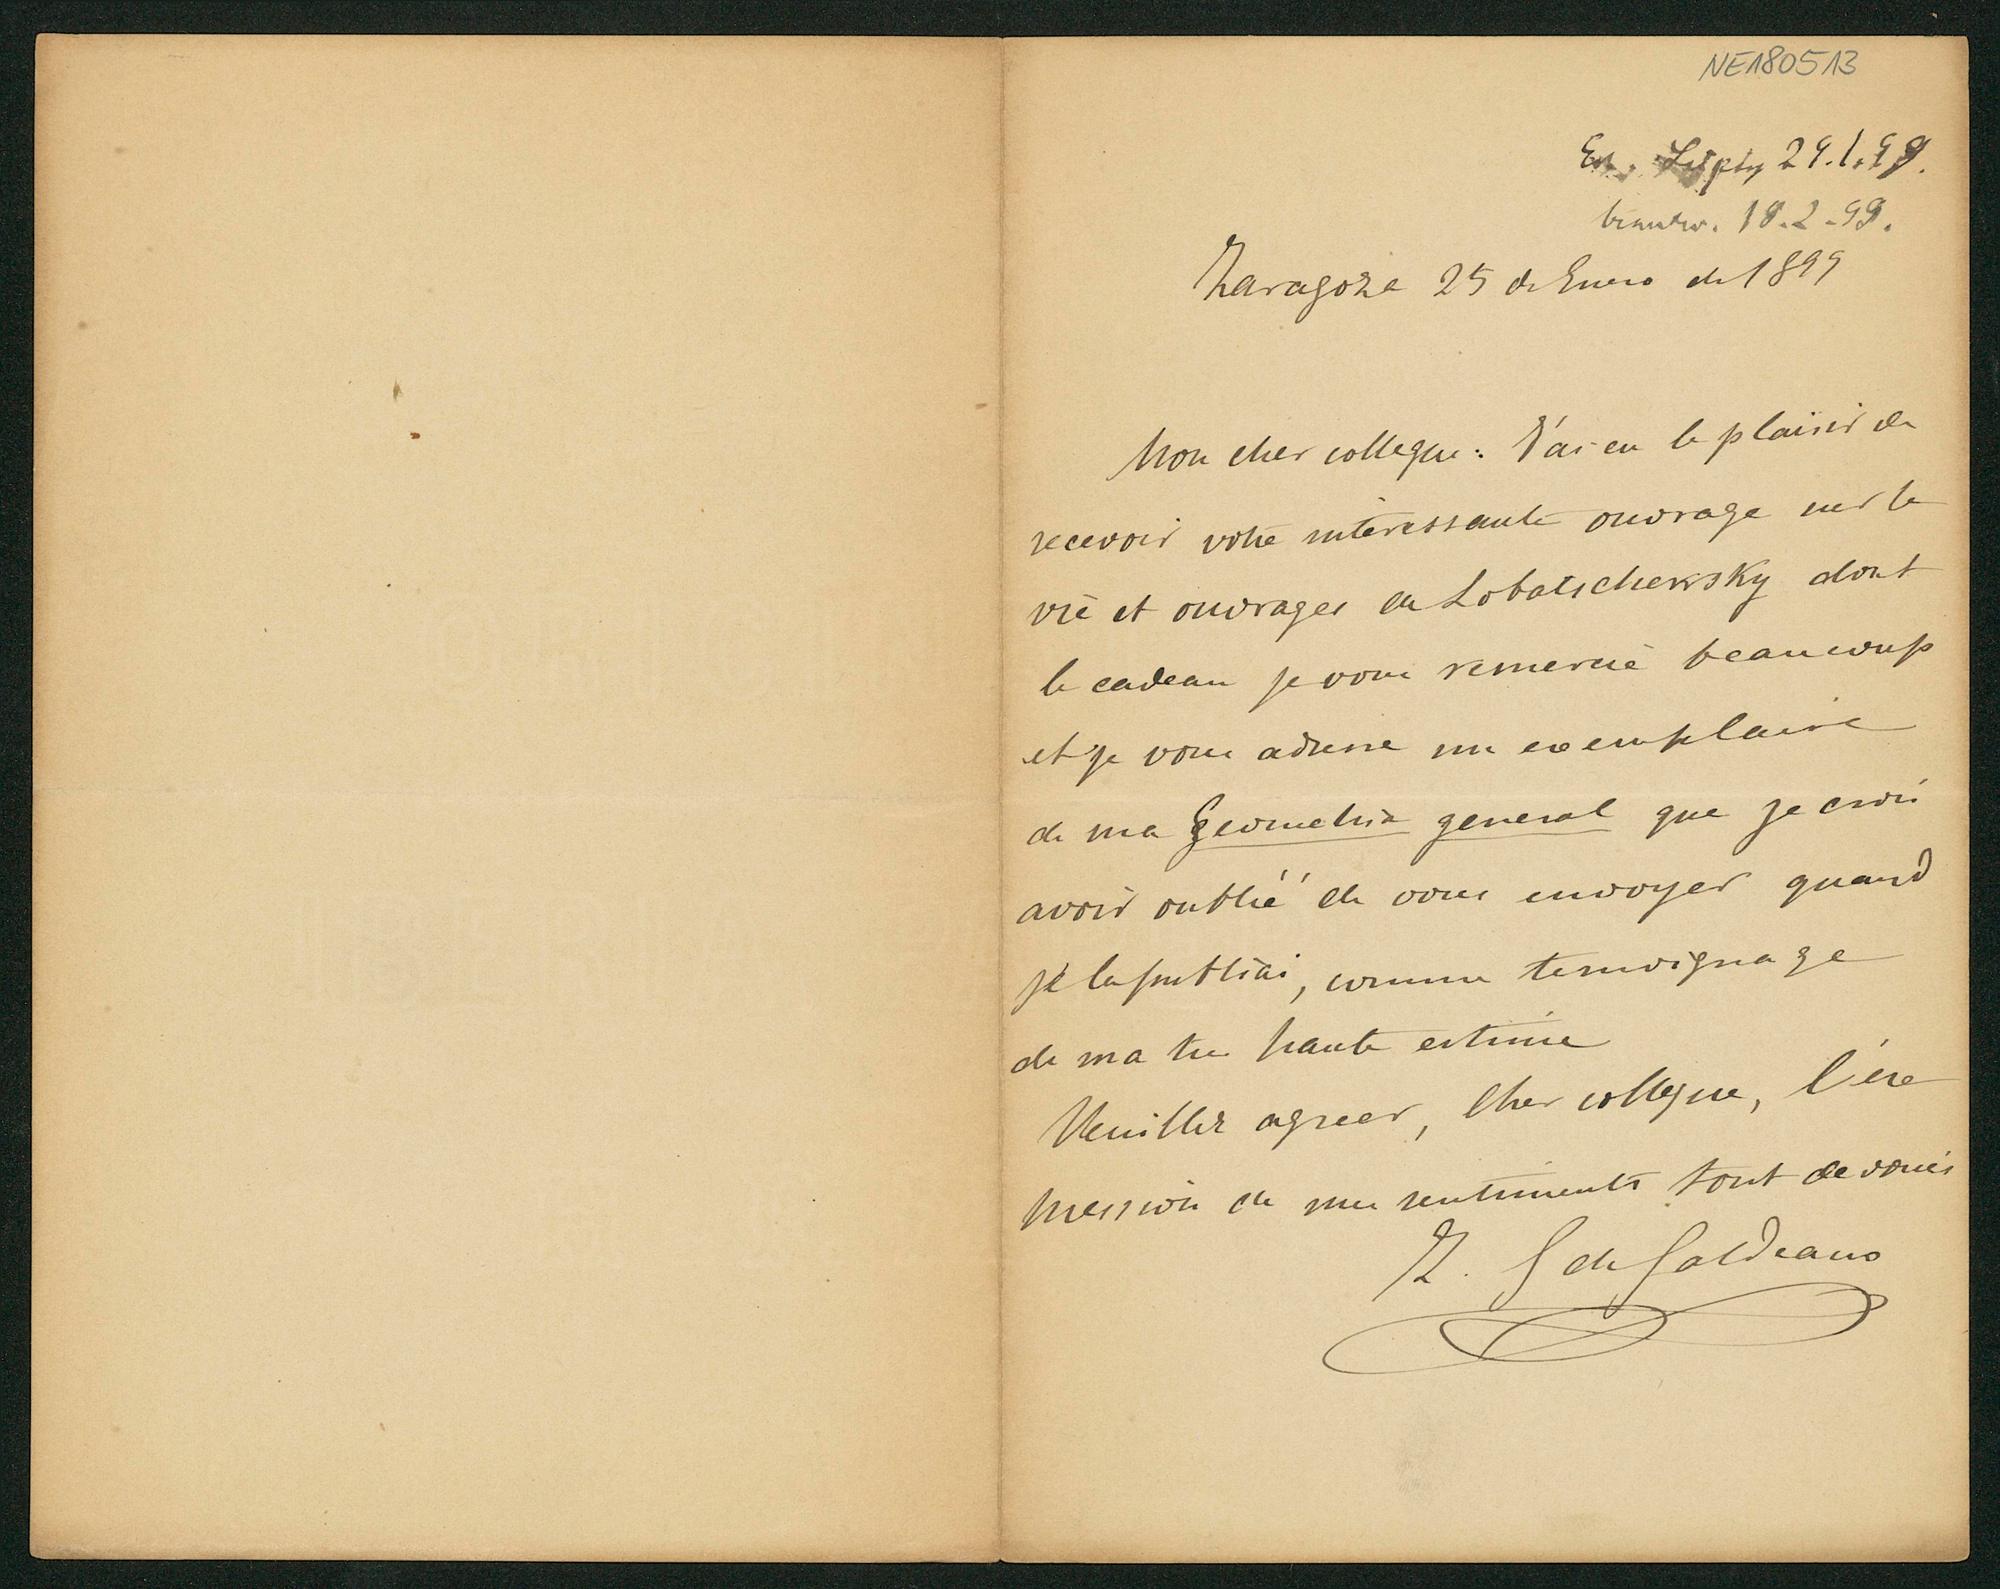 NE180513
Erh. Leipzig 29.1.99.
beantw. 18.2-99.
Zaragoza 25 de Enero de 1899
Mon cher collegue: J'ai eu le plaisir de
recevoir votre intèressante ouvrage sur la
vie et ouvrages de Lobatschewsky dont
le cadeau je vous remercie beaucoup
et je vous adresse un exemplaire
de ma Geometria general que je crois
avoir oublié de vous envoyer quand
je la publiai, comme temoignage
de ma tres haute estime
Veuillez agreer, cher collegue, l'éxe
pression de mes sentiments tout devoués
Z. G de Galdeano